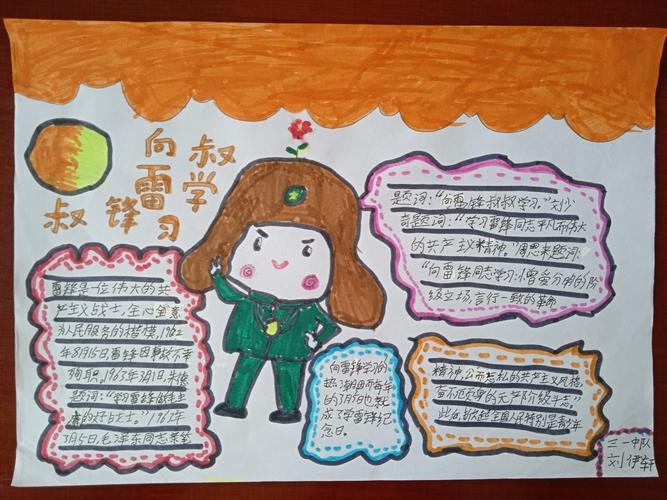 向雷锋叔叔学习
雷锋是一位伟大的共
产主义战士,全心全意
为人民服务的楷模,1962
年8月15日,雷锋因事故不幸
殉职。1963年3月1日,朱德
题词:"学习雷锋做毛主
席的好战士。"1962年
3月5日,毛泽东同志亲笔
题词:"向雷锋叔叔学习。"刘少
奇题词:"学习雷锋同志平凡而伟大
的共产主义精神。"周恩来题词:
"向雷锋同志学习:憎爱分明的阶
级立场,言行一致的革命
精神,公而忘私的共产主义风格,
奋不顾身的无产阶级斗志。"
此后,掀起全国人民特别是青少年
向雷锋学习的
热潮,因而每年
的3月5日也就
成了学雷锋纪
念日。
三一中队
刘伊轩